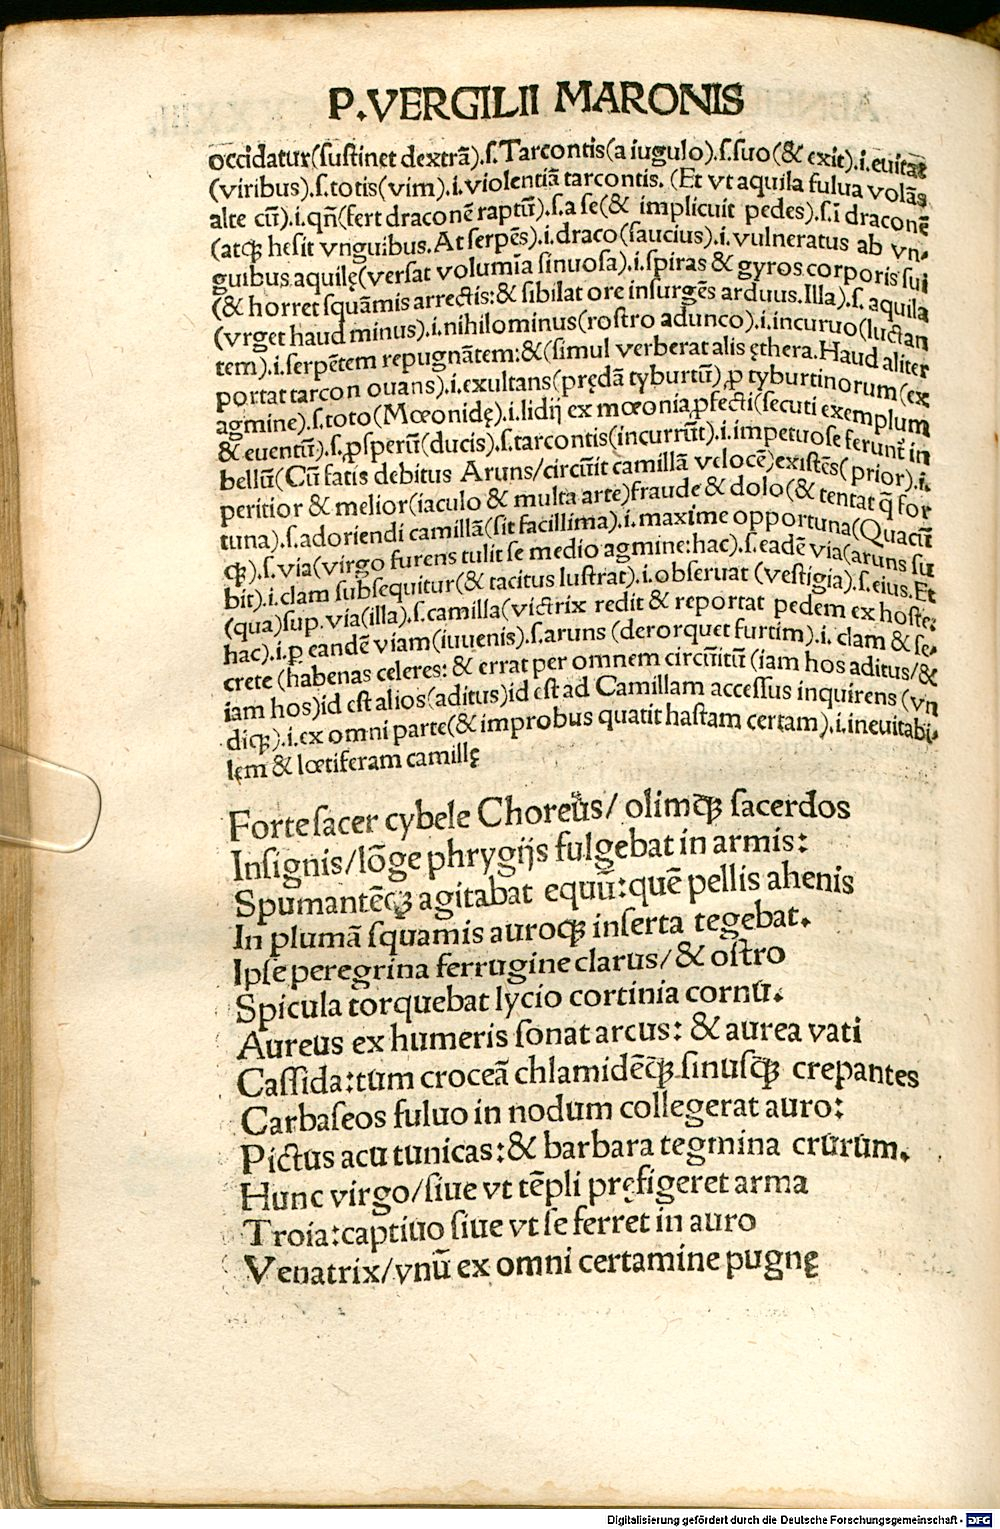 P.VERGILII MARONIS
occidatur(sustinet dextrā).s.Tarcontis(a iugulo).s.suo(& exit).i.euitat
(viribus).s.totis(vim).i.violentiā tarcontis. (Et vt aquila fulua volās
alte cū).i.qñ(fert draconē raptū).s.a se(& implicuit pedes).s.ī draconē
(atqꝫ hesit vnguibus.At serpēs).i.draco(saucius).i.vulneratus ab vn-
guibus aquilę(versat volumīa sinuosa).i.spiras & gyros corporis sui
(& horret squāmis arrectis:& sibilat ore insurgēs arduus.Illa).s. aquila
(vrget haud minus).i.nihilominus(rostro adunco).i.incuruo(luctan
tem).i.serpētem repugnātem:&(simul verberat alis ęthera.Haud aliter
portat tarcon ouans).i.exultans(prędā tyburtū)ꝓ tyburtinorum(ex
agmine).s.toto(Mœonidę).i.lidij ex mœonia ꝓfecti(secuti exemplum
& euentū).s.ꝓsperū(ducis).s.tarcontis(incurrūt).i.impetuose ferunt̃ in
bellū(Cū fatis debitus Aruns/circūit camillā velocē)existēs(prior).i.
peritior & melior(iaculo & multa arte)fraude & dolo(& tentat q̄ for
tuna).s.adoriendi camillā(sit facillima).i.maxime opportuna(Quacū
qꝫ).s.via(virgo furens tulit se medio agmine:hac).s.eadē via(aruns su
bit).i.clam subsequitur(& tacitus lustrat).i.obseruat (vestigia).s.eius.Et
(qua)sup.via(illa).s.camilla(victrix redit & reportat pedem ex hoste:
hac).i.ꝑ eandē viam(iuuenis).s.aruns (derorquet furtim).i. clam & se-
crete (habenas celeres: & errat per omnem circūitū (iam hos aditus/&
iam hos)id est alios(aditus)id est ad Camillam accessus inquirens (vn
diqꝫ).i.ex omni parte(& improbus quatit hastam certam).i.ineuitabi-
lem & lœtiferam camillę
Forte sacer cybele Choreus/ olimqꝫ sacerdos
Insignis/lōge phrygijs fulgebat in armis:
Spumantēqꝫ agitabat equū:quē pellis ahenis
In plumā squamis auroqꝫ inserta tegebat.
Ipse peregrina ferrugine clarus/& ostro
Spicula torquebat lycio cortinia cornu.
Aureus ex humeris sonat arcus: & aurea vati
Cassida:tum croceā chlamidēqꝫ sinusqꝫ crepantes
Carbaseos fuluo in nodum collegerat auro:
Pictus acu tunicas:& barbara tegmina crurum.
Hunc virgo/siue vt tēpli pręfigeret arma
Troia:captiuo siue vt se ferret in auro
Venatrix/vnū ex omni certamine pugnę
Digitalisierung gefördert durch die Deutsche Forschungsgemeinschaft - DFG